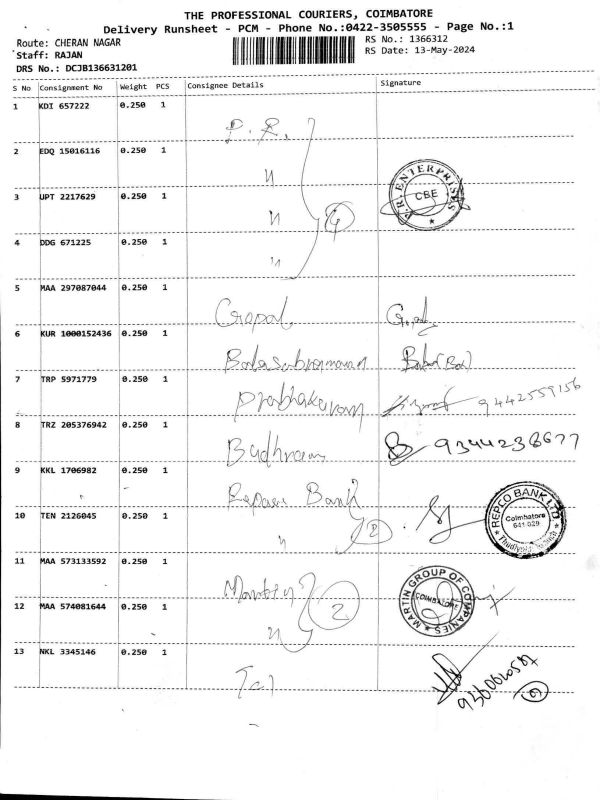 THE PROFESSIONAL COURIERS, COIMBATORE
Delivery Runsheet - PCM - Phone No.:0422-3505555 - Page No.:1
Route: CHERAN NAGAR
RS No.: 1366312
Staff: RAJAN
RS Date: 13-May-2024
DRS No.: DCJB136631201
S No Consignment No Weight PCS Consignee Details Signature
1 KDI 657222 0.250 1
P. R.
2 EDQ 15016116 0.250 1
"
R. ENTERPRISES CBE
3 UPT 2217629 0.250 1
" 4
4 DDG 671225 0.250 1
"
5 MAA 297087044 0.250 1
Gopal
6 KUR 1000152436 0.250 1
Balasubramanian
7 TRP 5971779 0.250 1
Prabhakaram 9442559156
8 TRZ 205376942 0.250 1
Badhram 9344238677
9 KKL 1706982 0.250 1
Bank
REPCO BANK LTD. Coimbatore 641 029
10 TEN 2126045 0.250 1
" 2
11 MAA 573133592 0.250 1
MARTIN GROUP OF COMPANIES COIMBATORE
12 MAA 574081644 0.250 1
" 2
13 NKL 3345146 0.250 1